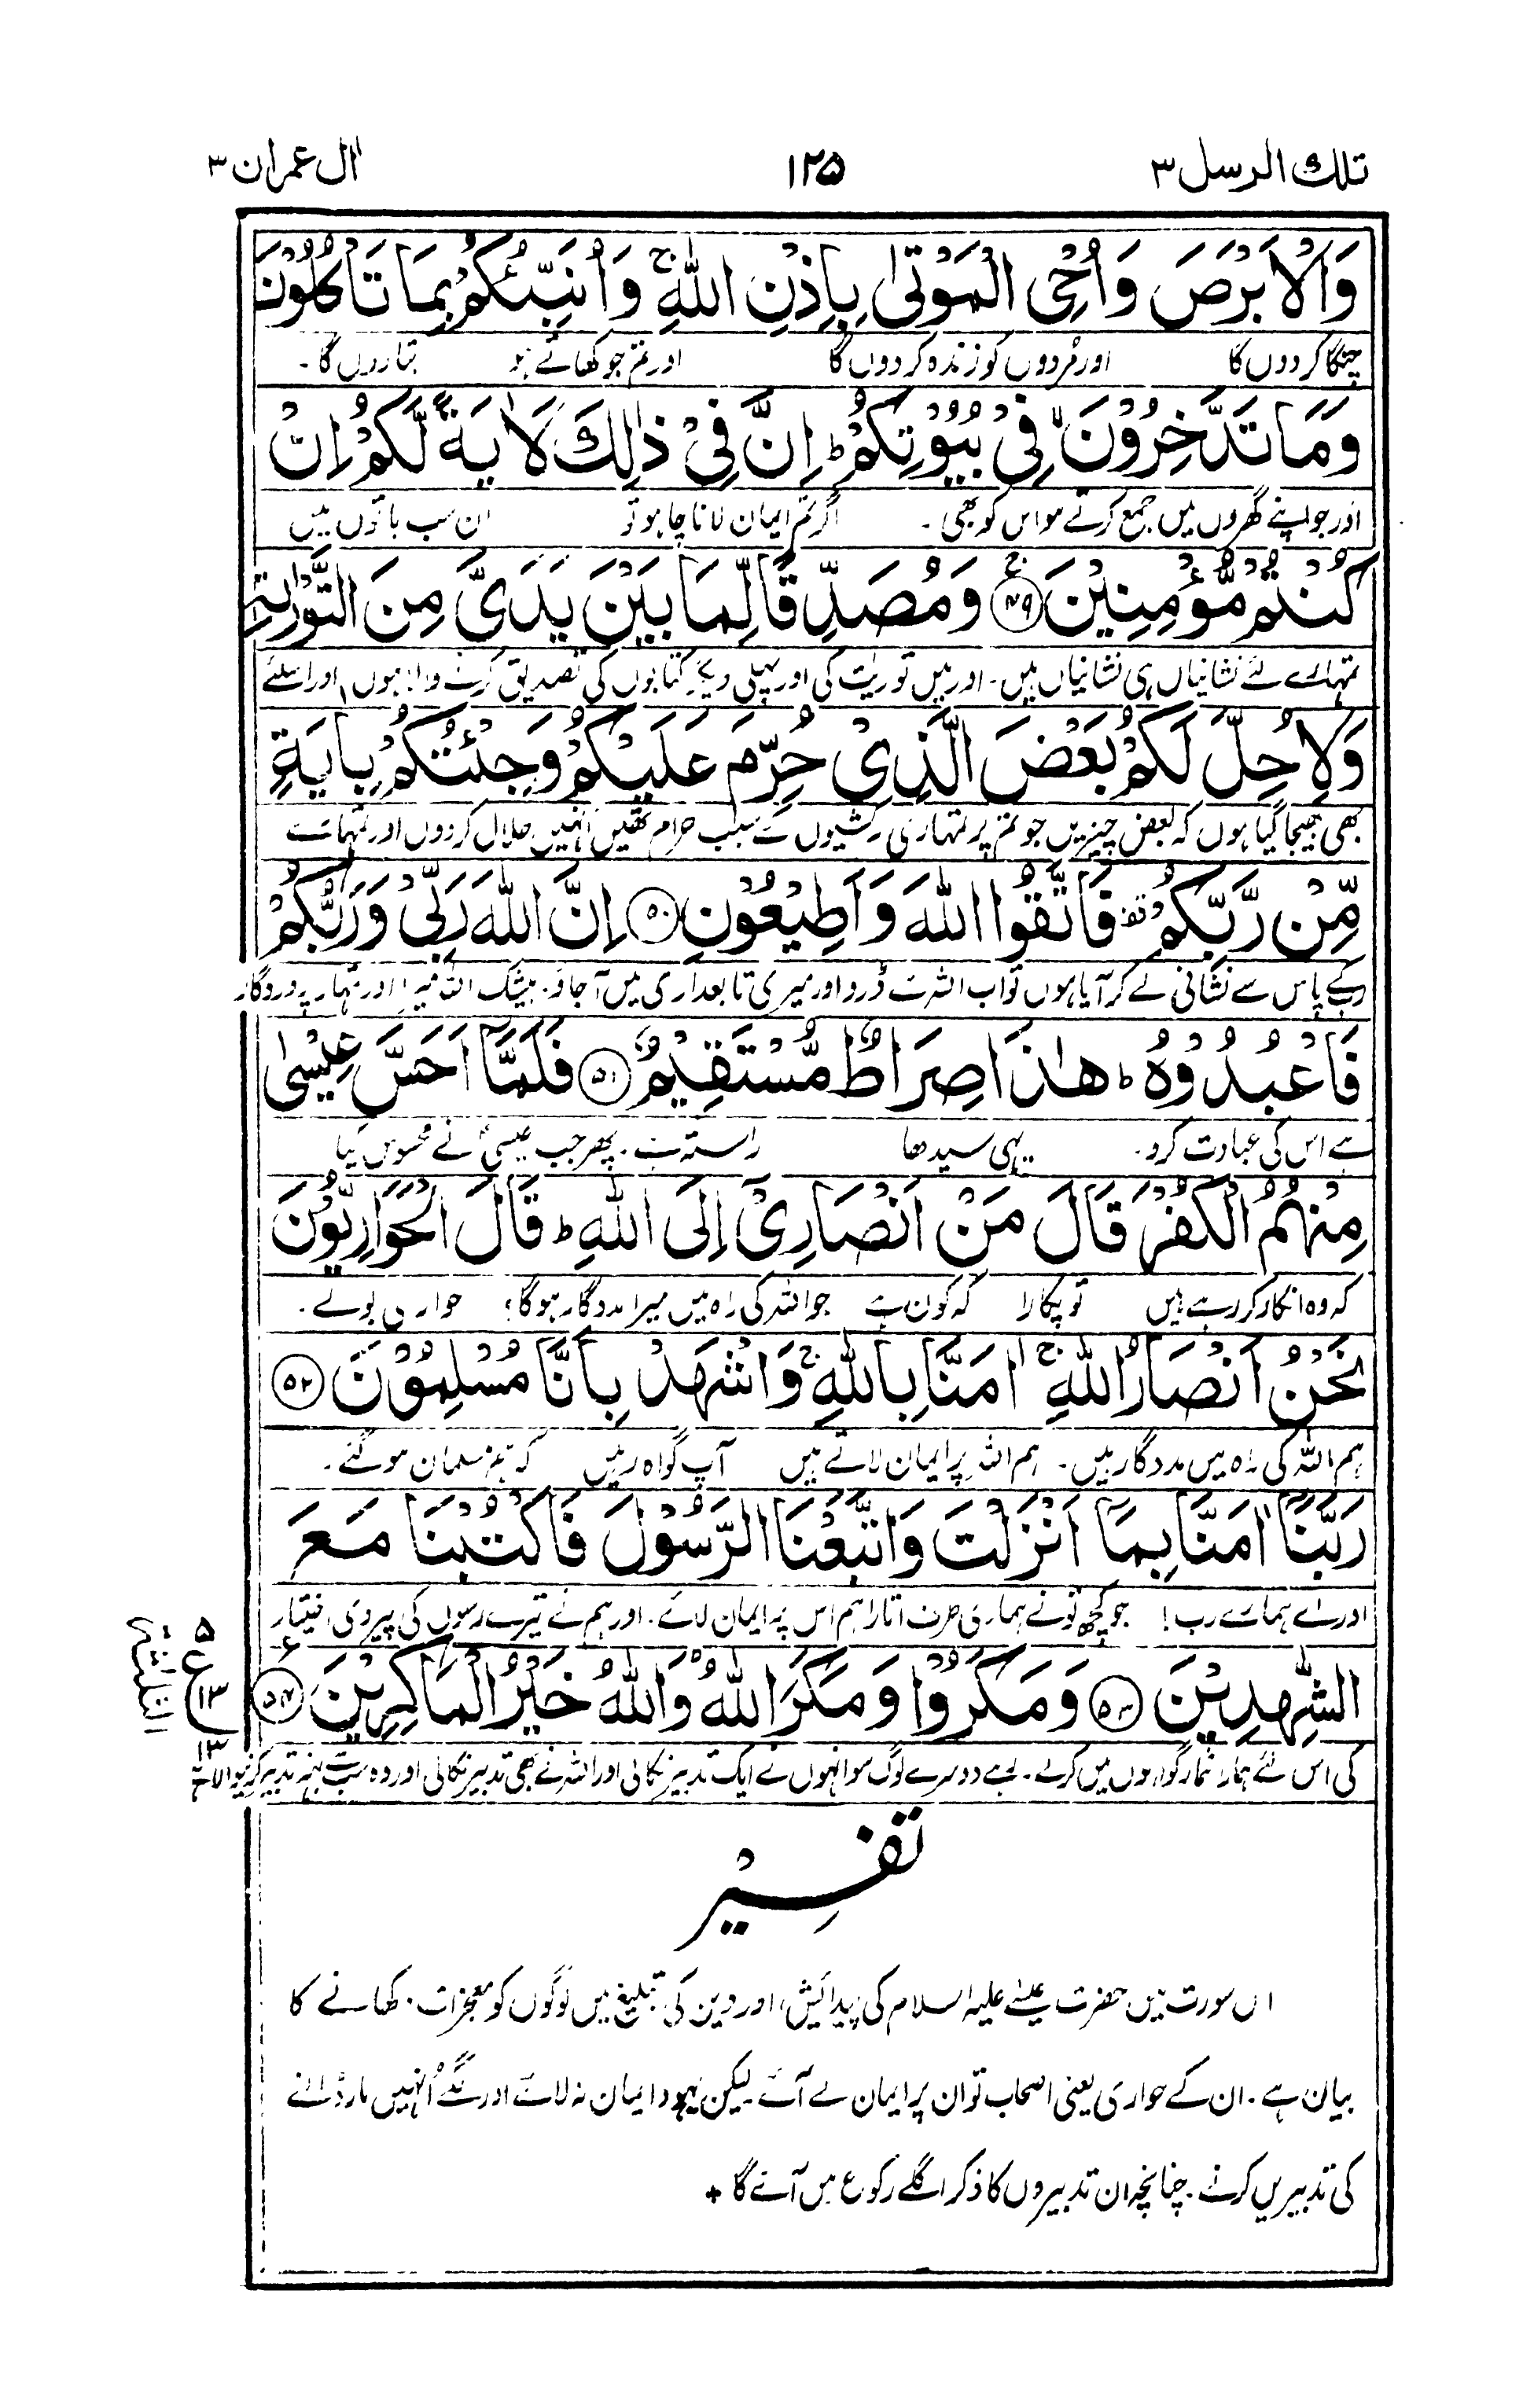 تلك الرسل ۳
۱۲۵
اٰل عمران ۳
وَالْاَبْرَصَ وَاُحْیِ الْمَوْتٰی بِاِذْنِ اللّٰهِ ۚ وَاُنَبِّئُكُمْ بِمَا تَاْكُلُوْنَ
چنگا کردوں گا اور مُردوں کو زندہ کردوں گا اور تم جو کھاتے ہو بتا دوں گا۔
وَمَا تَدَّخِرُوْنَ ۙ فِیْ بُیُوْتِكُمْ ؕ اِنَّ فِیْ ذٰلِكَ لَاٰیَةً لَّكُمْ اِنْ
اور جو اپنے گھروں میں جمع کرتے ہو اس کو بھی۔ اگر تم ایمان لانا چاہو تو ان سب باتوں میں
كُنْتُمْ مُّؤْمِنِیْنَ ۚ ﴿۴۹﴾ وَمُصَدِّقًا لِّمَا بَیْنَ یَدَیَّ مِنَ التَّوْرٰىةِ
تمہارے لئے نشانیاں ہی نشانیاں ہیں۔ اور میں توریت کی اور پہلی دیگر کتابوں کی تصدیق کرنے والا ہوں، اور اسلئے
وَلِاُحِلَّ لَكُمْ بَعْضَ الَّذِیْ حُرِّمَ عَلَیْكُمْ وَجِئْتُكُمْ بِاٰیَةٍ
بھی بھیجا گیا ہوں کہ بعض چیزیں جو تم پر تمہاری سرکشیوں کے سبب حرام تھیں انہیں حلال کردوں اور تمہارے
مِّنْ رَّبِّكُمْ ۫ فَاتَّقُوا اللّٰهَ وَاَطِیْعُوْنِ ﴿۵۰﴾ اِنَّ اللّٰهَ رَبِّیْ وَرَبُّكُمْ
رب کے پاس سے نشانی لے کر آیا ہوں تو اب اللہ سے ڈرو اور میری تابعداری میں آجاؤ۔ بیشک اللہ میرا اور تمہارا پروردگار
فَاعْبُدُوْهُ ؕ هٰذَا صِرَاطٌ مُّسْتَقِیْمٌ ﴿۵۱﴾ فَلَمَّاۤ اَحَسَّ عِیْسٰی
ہے اس کی عبادت کرو۔ یہی سیدھا راستہ ہے۔ پھر جب عیسیٰؑ نے محسوس کیا
مِنْهُمُ الْكُفْرَ قَالَ مَنْ اَنْصَارِیْۤ اِلَی اللّٰهِ ؕ قَالَ الْحَوَارِیُّوْنَ
کہ وہ انکار کررہے ہیں تو پکارا کہ کون ہے جو اللہ کی راہ میں میرا مددگار ہوگا؟ حواری بولے۔
نَحْنُ اَنْصَارُ اللّٰهِ ۚ اٰمَنَّا بِاللّٰهِ ۚ وَاشْهَدْ بِاَنَّا مُسْلِمُوْنَ ﴿۵۲﴾
ہم اللہ کی راہ میں مددگار ہیں۔ ہم اللہ پر ایمان لاتے ہیں آپ گواہ رہیں کہ ہم مسلمان ہوگئے۔
رَبَّنَاۤ اٰمَنَّا بِمَاۤ اَنْزَلْتَ وَاتَّبَعْنَا الرَّسُوْلَ فَاكْتُبْنَا مَعَ
اور اے ہمارے رب! جو کچھ تونے ہماری طرف اتارا ہم اس پر ایمان لائے۔ اور ہم نے تیرے رسول کی پیروی اختیار
الشّٰهِدِیْنَ ﴿۵۳﴾ وَمَكَرُوْا وَمَكَرَ اللّٰهُ ؕ وَاللّٰهُ خَیْرُ الْمَاكِرِیْنَ ﴿۵۴﴾
۵
ع
۱۳
۱۳
الثلاثة
کی اس لئے ہمارا شمار گواہوں میں کرلے۔ رہے دوسرے لوگ سو انہوں نے ایک تدبیر نکالی اور اللہ نے بھی تدبیر نکالی اور وہ سب سے بہتر تدبیر کرنیوالا ہے
تفسیر
اس سورت میں حضرت عیسےٰ علیہ السلام کی پیدائش، اور دین کی تبلیغ میں لوگوں کو معجزات دکھانے کا
بیان ہے۔ ان کے حواری یعنی اصحاب تو ان پر ایمان لے آئے لیکن یہود ایمان نہ لائے اور لگے اُنہیں مار ڈالنے
کی تدبیریں کرنے۔ چنانچہ ان تدبیروں کا ذکر اگلے رکوع میں آئے گا +